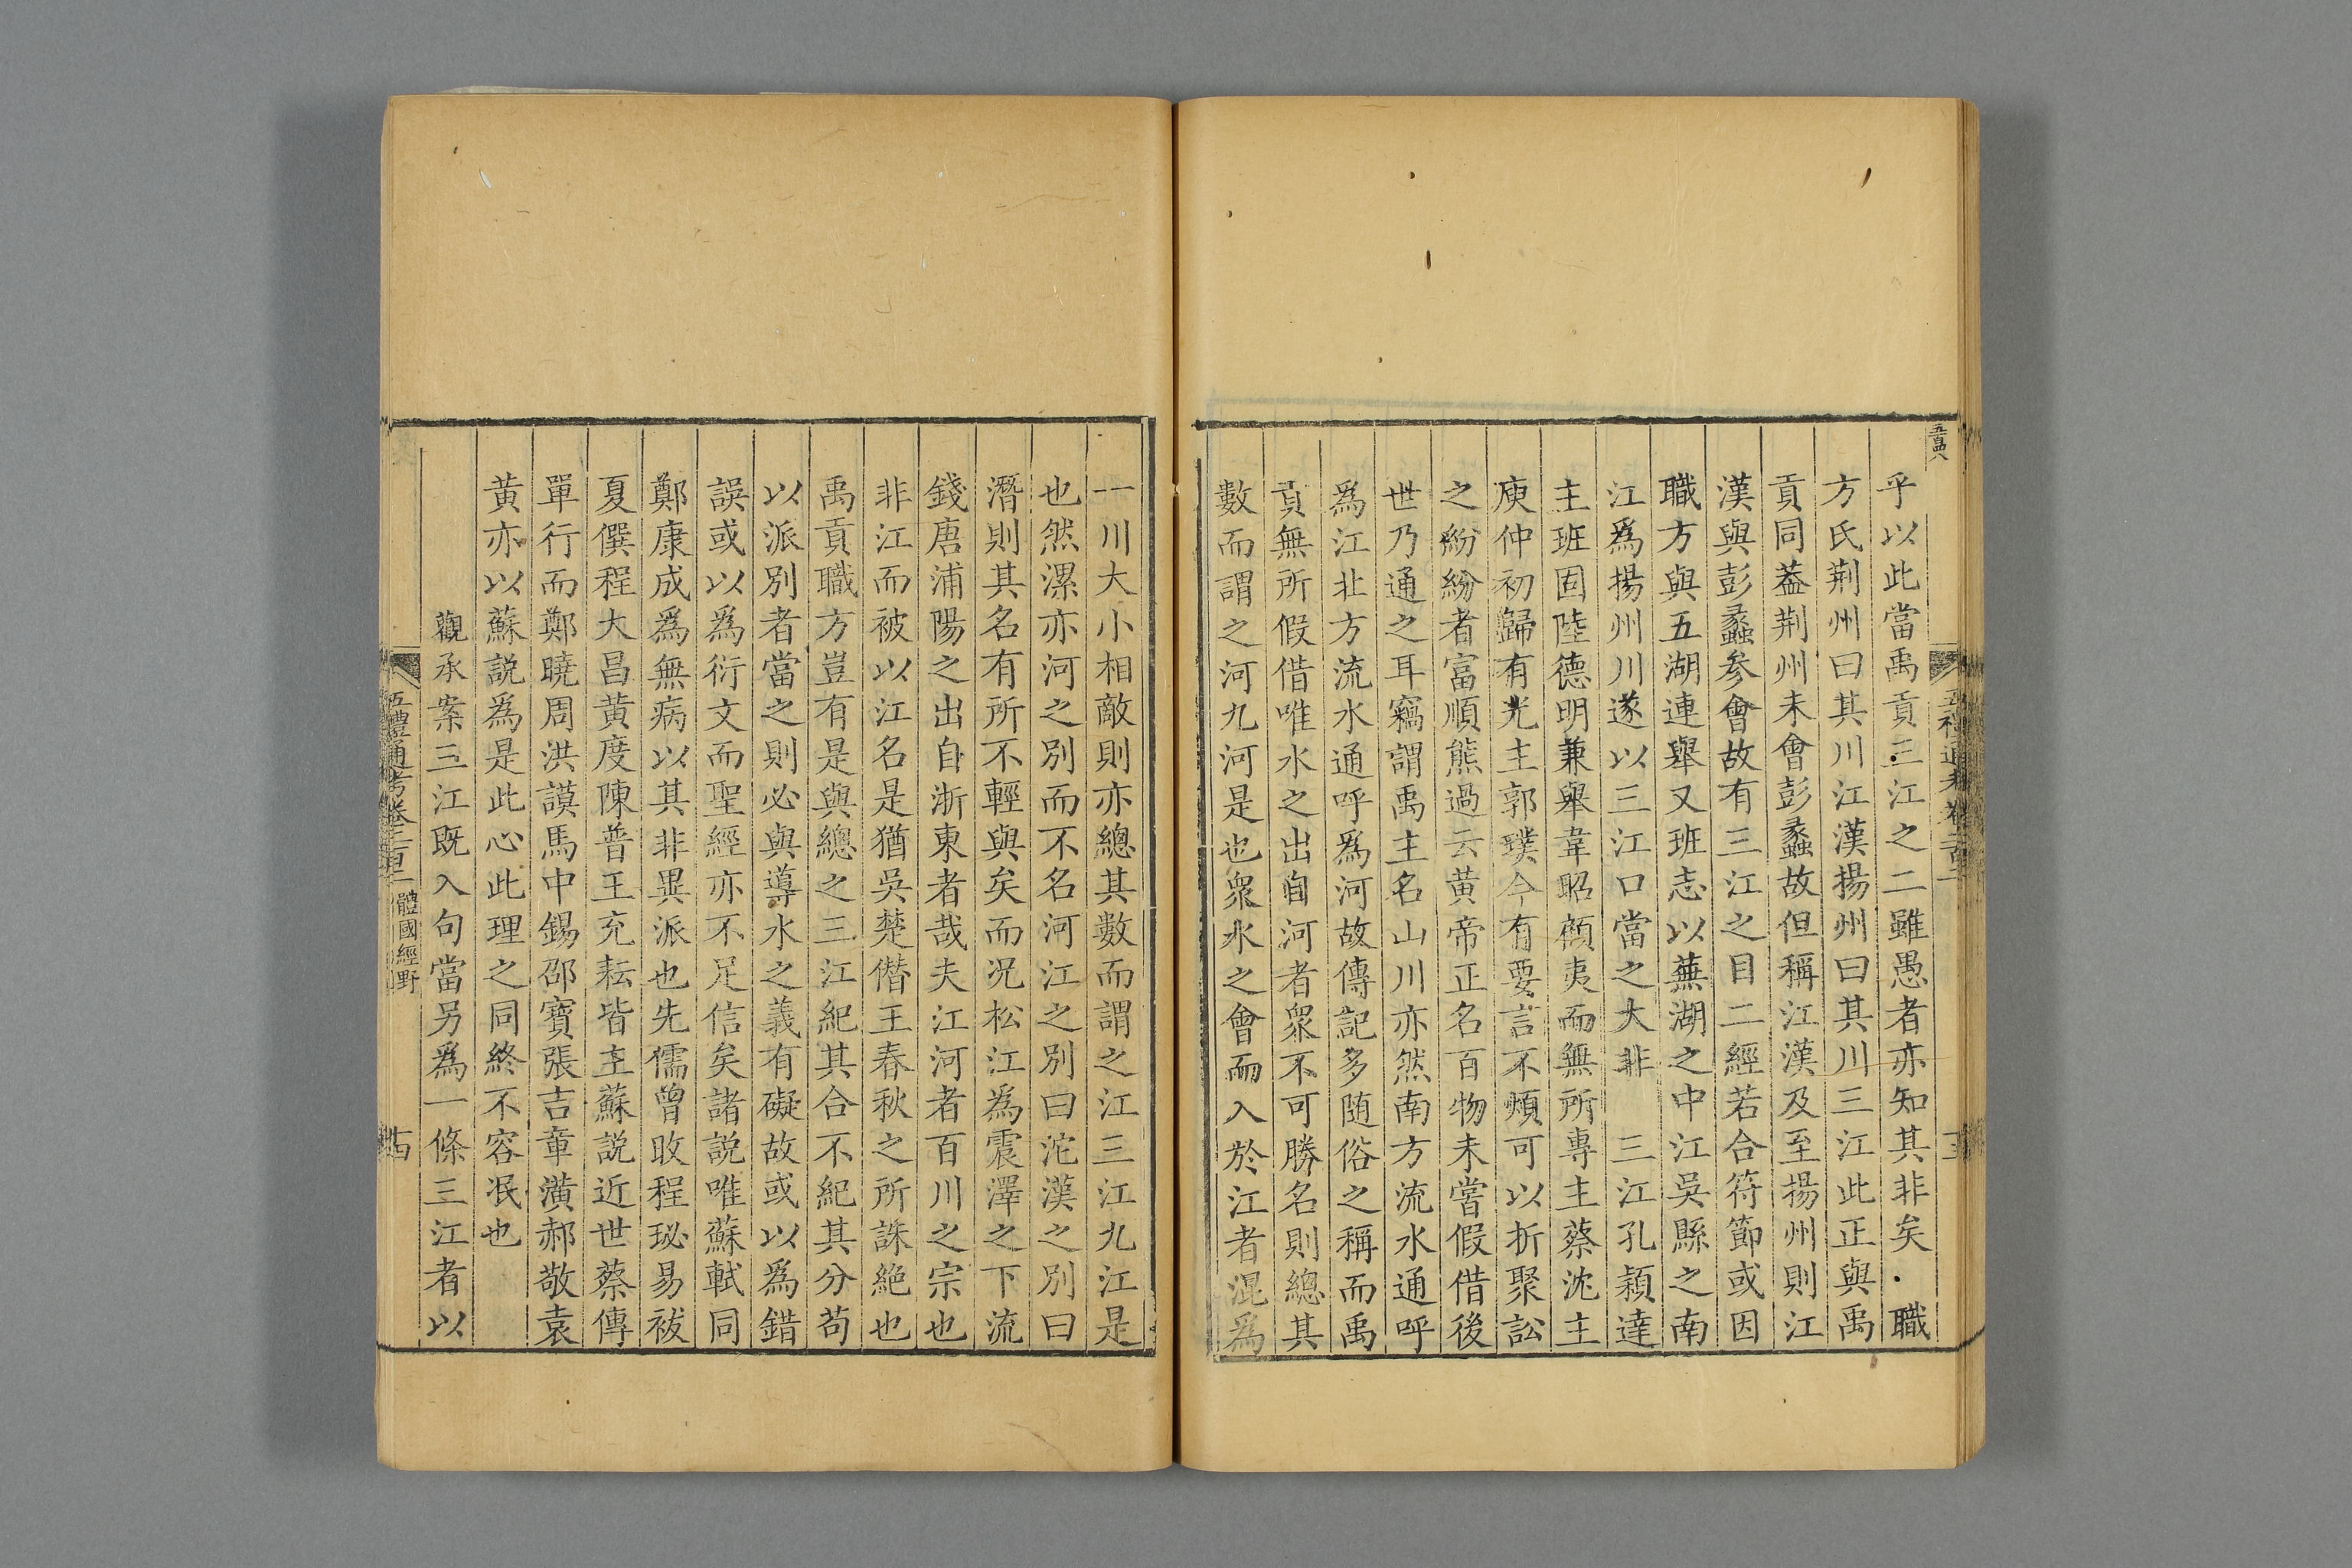 五百四八
乎以此當禹貢三江之二雖愚者亦知其非矣．職
方氏荆州曰其川江漢揚州曰其川三江此正與禹
貢同葢荆州未會彭蠡故但稱江漢及至揚州則江
漢與彭蠡參會故有三江之目二經若合符節或因
職方與五湖連舉又班志以蕪湖之中江吳縣之南
江爲揚州川遂以三江口當之大非　三江孔穎達
主班固陸德明兼舉韋昭顧夷而無所專主蔡沈主
庾仲初歸有光主郭璞今有要言不煩可以折聚訟
之紛紛者富順熊過云黃帝正名百物未嘗假借後
世乃通之耳竊謂禹主名山川亦然南方流水通呼
爲江北方流水通呼爲河故傳記多随俗之稱而禹
貢無所假借唯水之出自河者衆不可勝名則總其
數而謂之河九河是也衆水之會而入於江者混爲
一川大小相敵則亦總其數而謂之江三江九江是
也然漯亦河之別而不名河江之別曰沱漢之別曰
潛則其名有所不輕與矣而况松江爲震澤之下流
錢唐浦陽之出自浙東者哉夫江河者百川之宗也
非江而被以江名是猶吳楚僣王春秋之所誅絶也
禹貢職方豈有是與總之三江紀其合不紀其分苟
以派別者當之則必與導水之義有礙故或以爲錯
誤或以爲衍文而聖經亦不足信矣諸説唯蘇軾同
鄭康成爲無病以其非異派也先儒曾旼程珌易祓
夏僎程大昌黃度陳普王充耘皆主蘇説近世蔡傳
單行而鄭曉周洪謨馬中錫邵寶張吉章潢郝敬袁
黃亦以蘇説爲是此心此理之同終不容泯也
觀承案三江既入句當另爲一條三江者以
五禮通考卷二百一 體國經野